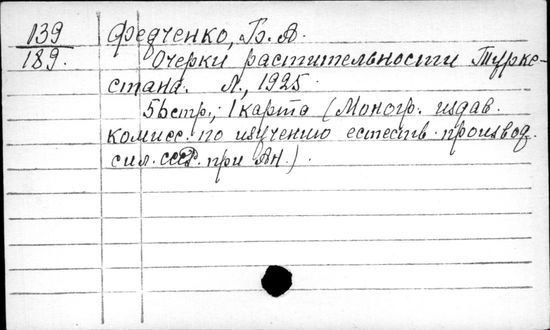 139
189.
Федченко, Б. А.
Очерки растительности Турке-
стана. Л., 1925
56стр., 1 карта (Моногр. издав.
комисс. по изучению естеств. производ.
сил. СССР. при Ан.)